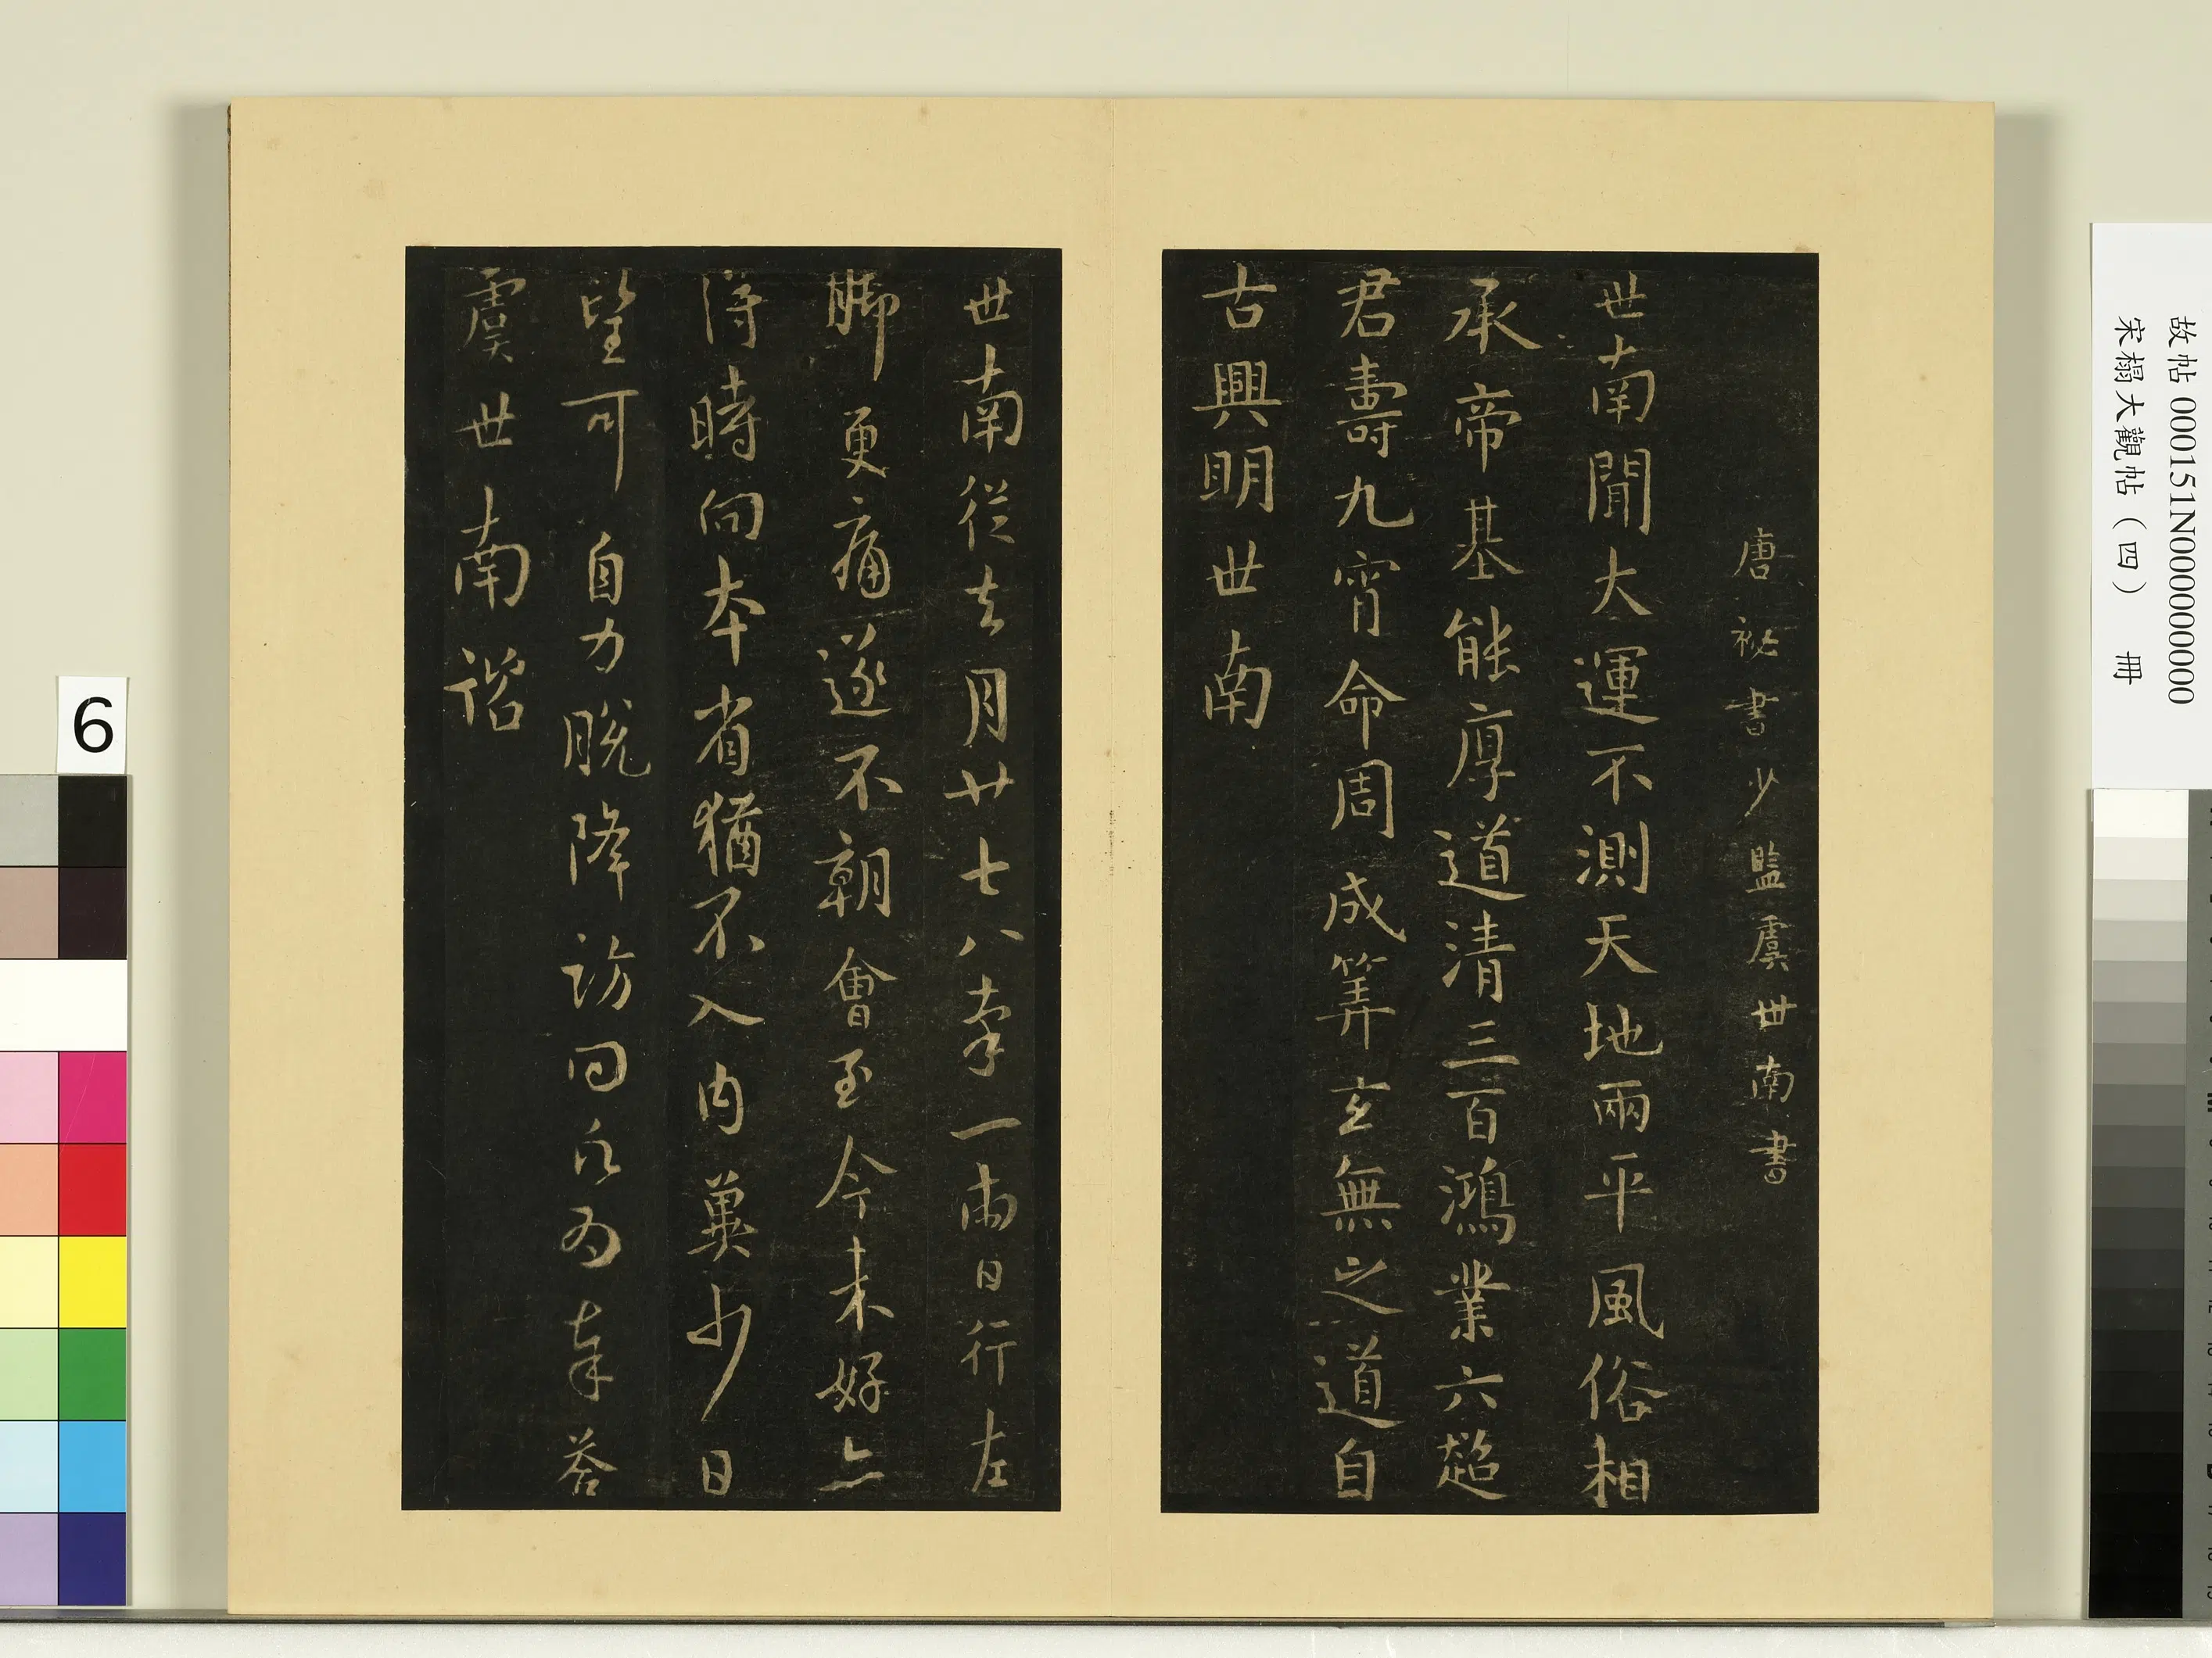 唐祕書少監虞世南書
世南聞大運不測天地兩平風俗相
承帝基能厚道清三百鴻業六超
君壽九霄命周成筭玄無之道自
古興明世南
世南從去月廿七八率一兩日行左
脚更痛遂不朝會至今未好亦
得時向本省猶不入內冀少日
望可自力脫降訪問願為奉答
虞世南諮
故帖 000151N000000000
宋榻大觀帖（四） 冊
6